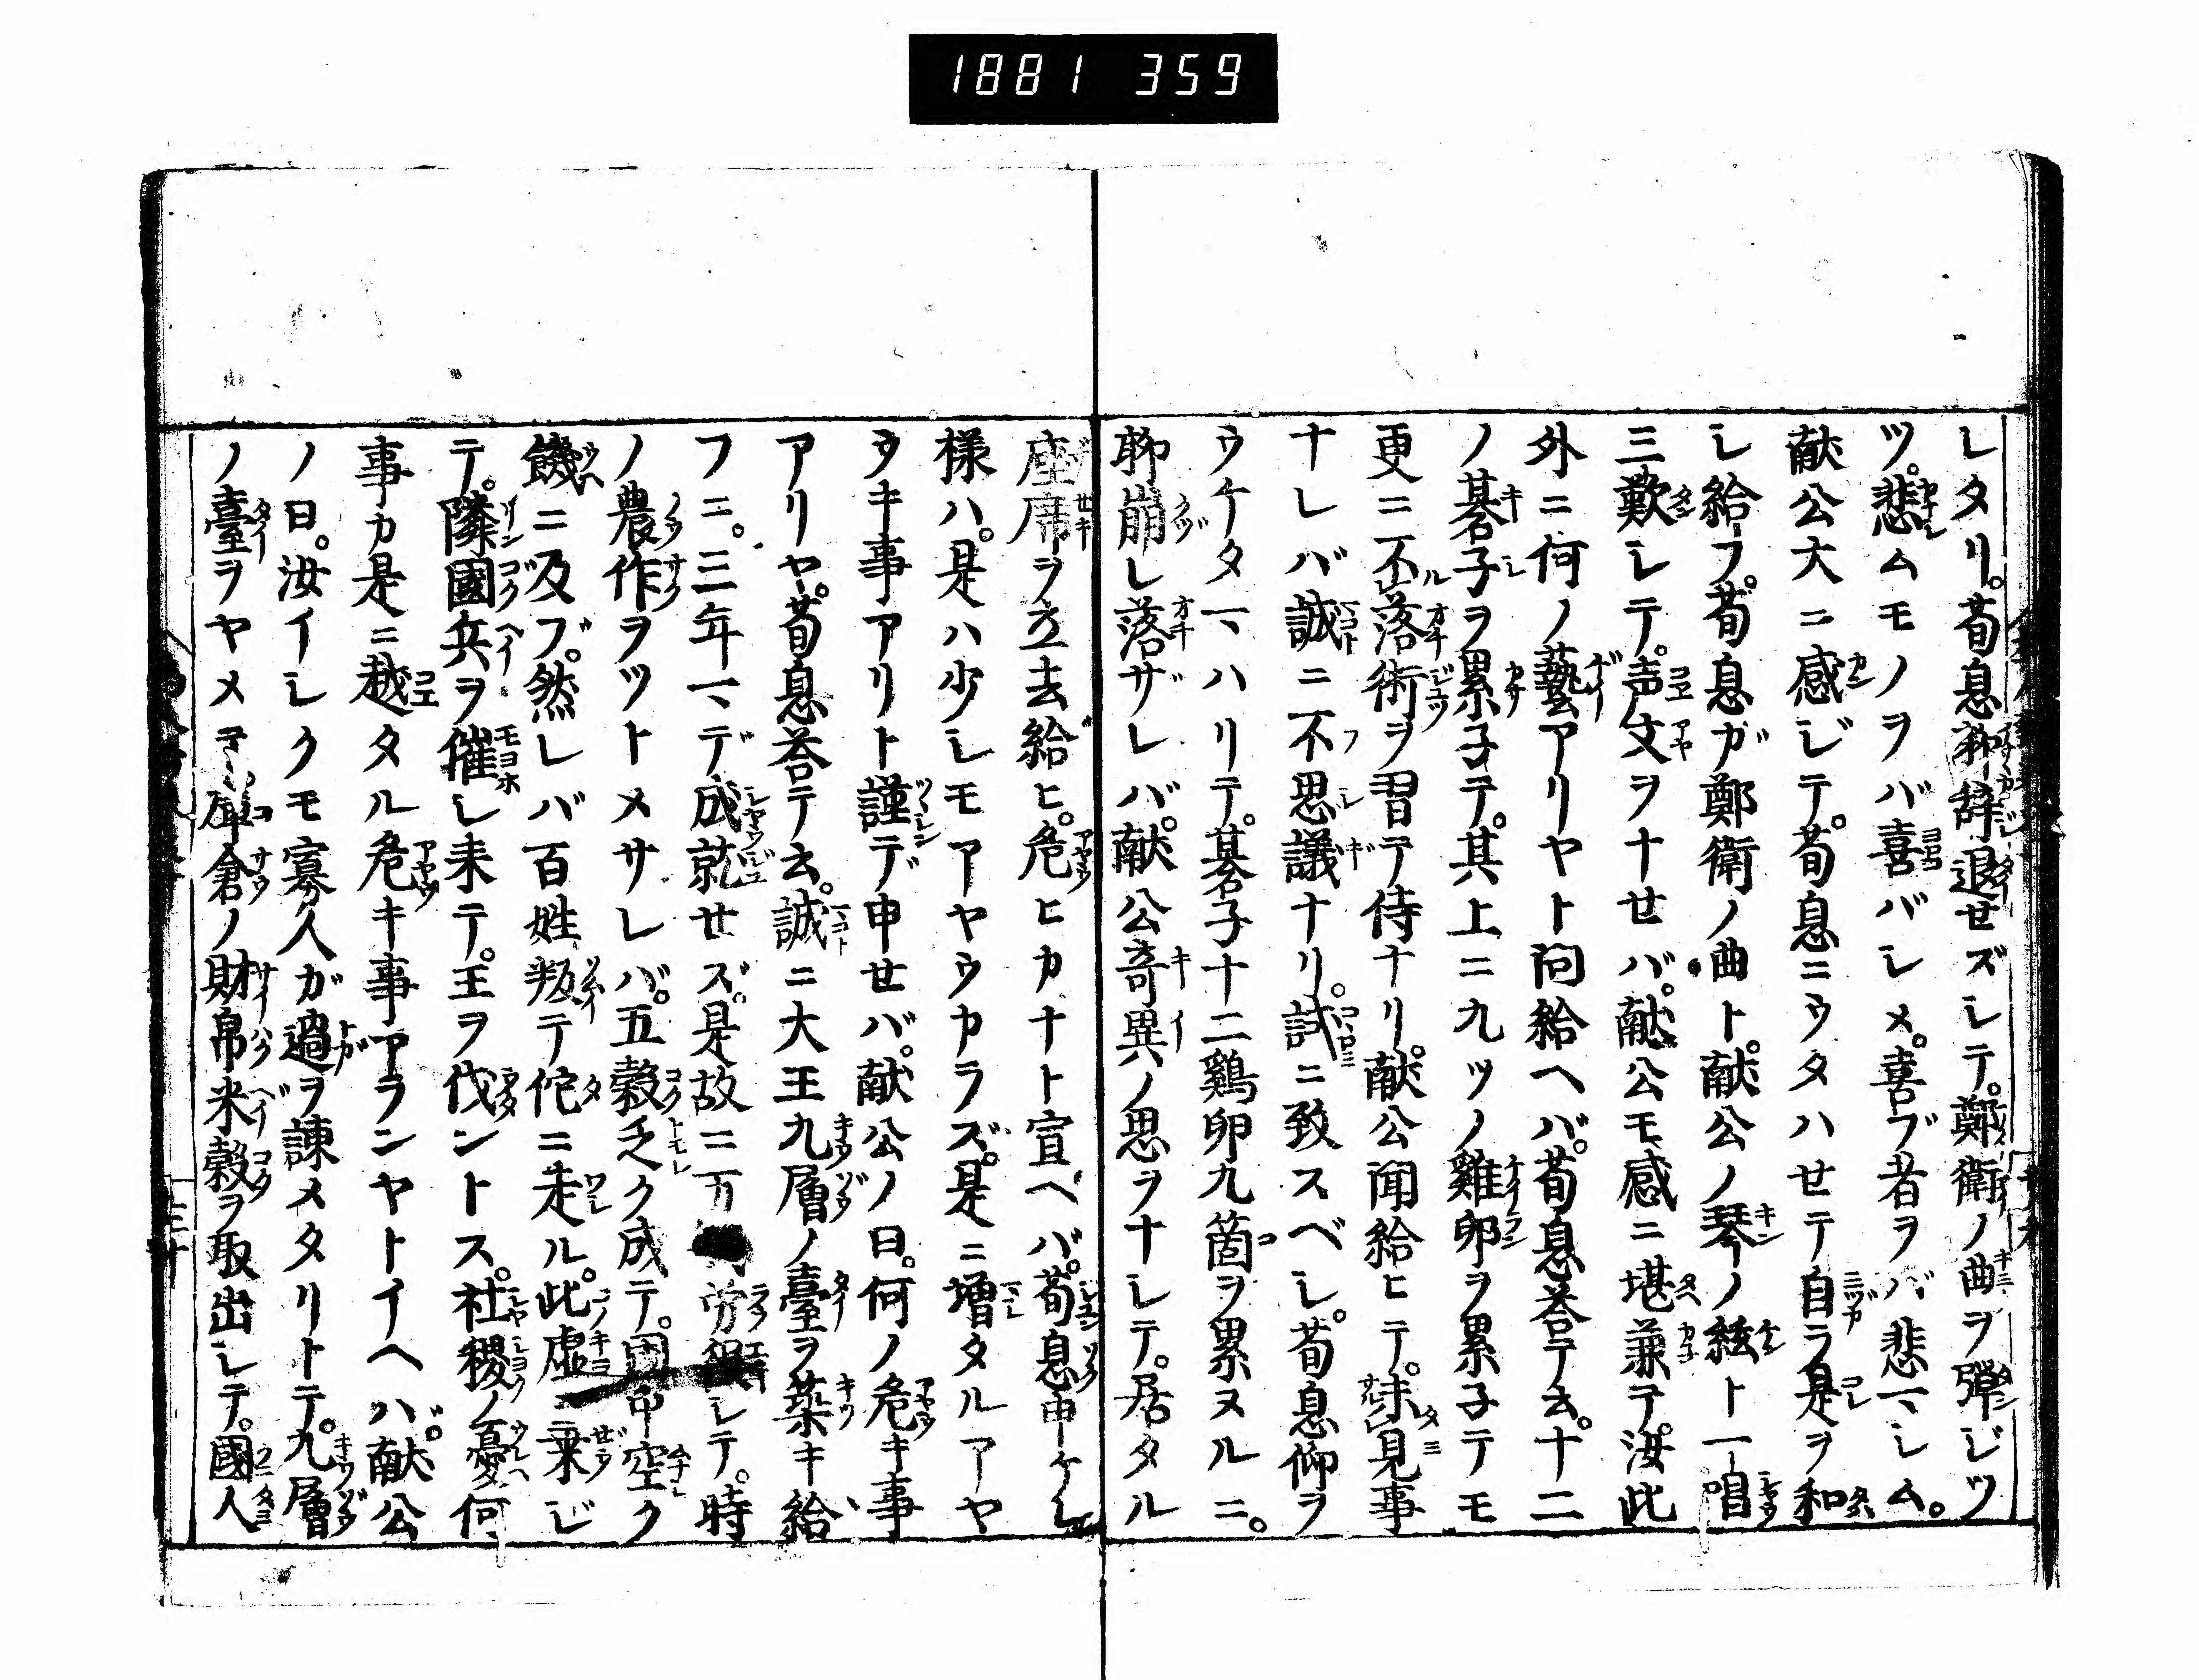 1881 359
レタリ。荀息聊辞退せズレテ。鄭衛ノ曲ヲ弾ジツ
ツ。悲ムモノヲバ喜バレメ。喜ブ者ヲバ悲マシム。
献公大ニ感ジテ。荀息ニウタハせテ自ラ是ヲ和
シ給フ。荀息ガ鄭衛ノ曲ト。献公ノ琴ノ絃ト一唱
三歎レテ。声文ヲナせバ。献公モ感ニ堪兼テ。汝此
外ニ何ノ藝アリヤト問給ヘバ。荀息荅テ云。十二
ノ碁子ヲ累子テ。其上ニ九ツノ雞卵ヲ累子テモ
更ニ不落術ヲ習テ侍ナリ。献公聞給ヒテ。未見事
ナレバ誠ニ不思議ナリ。試ニ致スベシ。荀息仰ヲ
ウケタマハリテ。碁子十二鶏卵九箇ヲ累ヌルニ。
聊崩レ落ザレバ。献公奇異ノ思ヲナレテ。居タル
座席ヲ立去給ヒ。危ヒカナト宣ヘバ。荀息申ケレ
様ハ。是ハ少シモアヤウカラズ。是ニ増タルアヤ
ウキ事アリト謹デ申せバ。献公ノ曰。何ノ危キ事
アリヤ。荀息荅テ云。誠ニ大王九層ノ臺ヲ築キ給
フニ。三年マデ成就せズ。是故ニ万 労 レテ。時
ノ農作ヲツトメサレバ。五穀乏ク成テ。国中空ク
饑ニ及ブ。然レバ百姓叛テ佗ニ走ル。此虚ニ乗ジ
テ。隣國兵ヲ催シ来テ。王ヲ伐ントス。社稷ノ憂何
事カ是ニ越タル危キ事アランヤトイヘバ。献公
ノ曰。汝イシクモ寡人ガ過ヲ諌メタリトテ。九層
ノ臺ヲヤメテ 庫倉ノ財帛米穀ヲ取出レテ。國人
三十